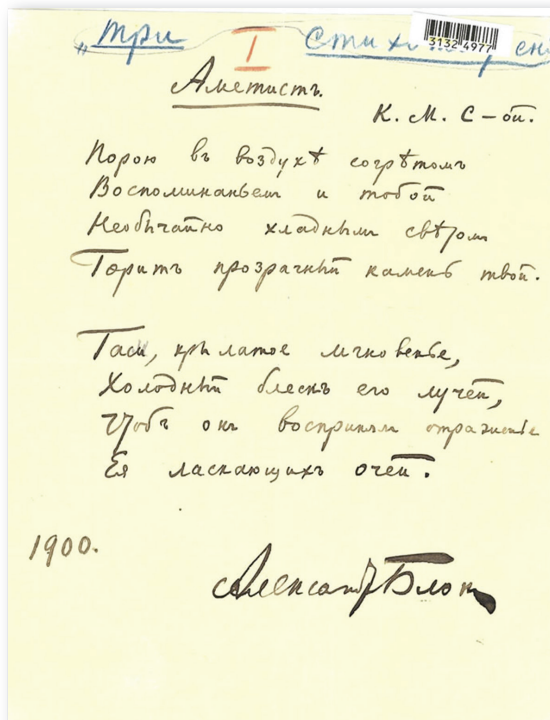 "Три I Стихотворені
3132 4977
Аметистъ.
К. М. С-ой.
Порою въ воздухѣ согрѣтомъ
Воспоминаньем и тобой
Необычайно хладным свѣтом
Горитъ прозрачный камень твой.
Гаси, крылатое мгновенье,
Холодный блескъ его лучей,
Чтобъ онъ воспринял отраженье
Ея ласкающихъ очей.
1900.
Александр Блок